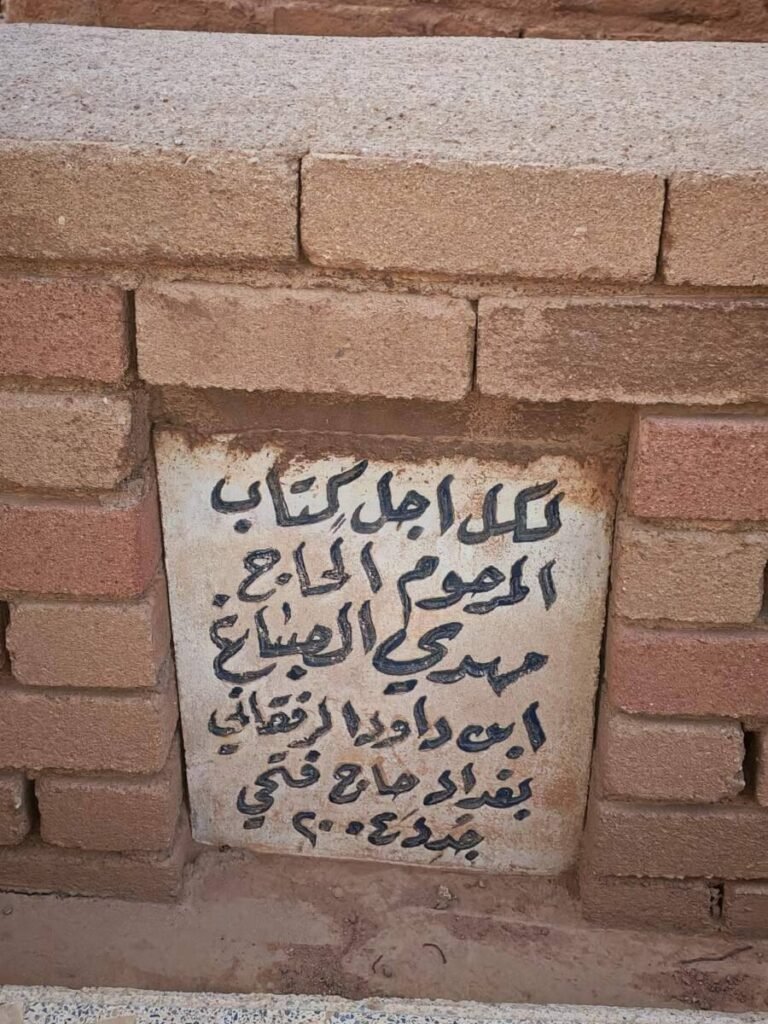 لكل اجل كِتاب
المرحوم الحاج
مهدي الصباغ
ابن داود الرفقاني
بغداد حاج فتحي
جُدِدَ ٢٠٠٤